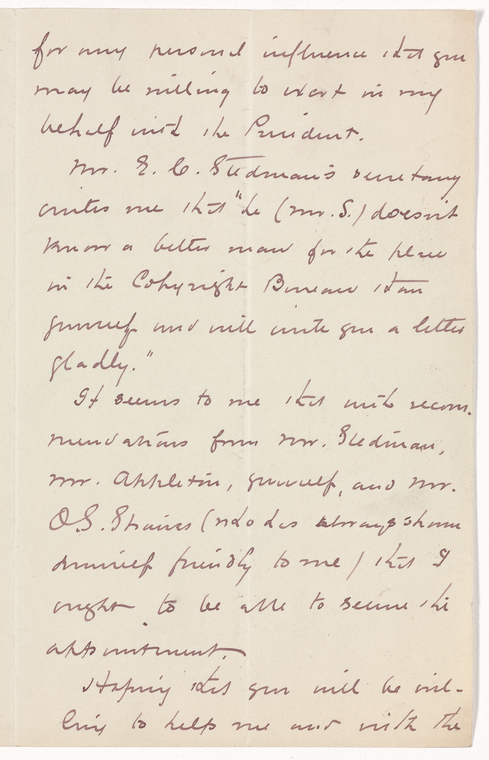 for any personal influence that you
may be willing to exert in my
behalf with the President.
Mr. E. C. Stedman's secretary
writes me that "he (Mr. S.) doesn't
know a better man for the place
in the Copyright Bureau than
yourself and will write you a letter
gladly."
It seems to me that with recom-
mendations from Mr. Stedman,
Mr. Appleton, yourself, and Mr.
O.S. Straus (who has always shown
himself friendly to me) that I
ought to be able to secure the
appointment.
Hoping that you will be wil-
ling to help me and with the